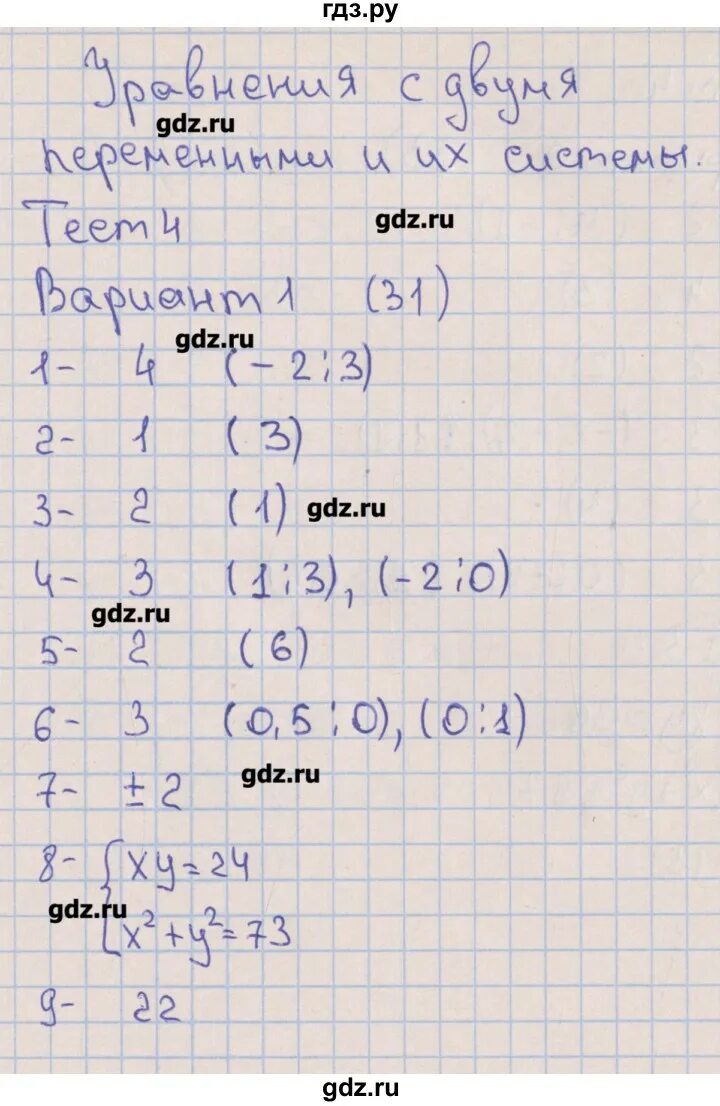 гдз.ру
Уравнения с двумя
gdz.ru
переменными и их системы.
Тест 4
gdz.ru
Вариант 1 (31)
gdz.ru
1- 4 (-2;3)
2- 1 (3)
3- 2 (1)
gdz.ru
4- 3 (1;3), (-2;0)
gdz.ru
5- 2 (6)
6- 3 (0,5;0), (0;1)
gdz.ru
7- ±2
8- { xy=24
gdz.ru
x²+y²=73
9- 22
gdz.ru